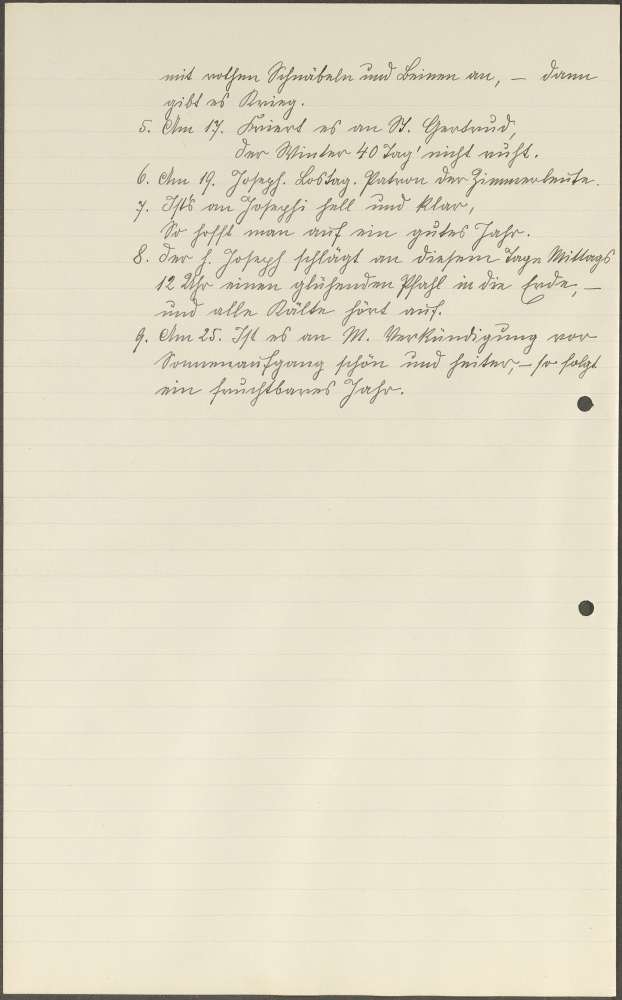 mit rothen Schnäbeln und Beinen an, — dann
gibt es Krieg.
5. Am 17. Friert es an St. Gertrud,
Der Winter 40 Tag' nicht ruht.
6. Am 19. Joseph. Lostag. Patron der Zimmerleute.
7. Ist's an Josephi hell und klar,
So hofft man auf ein gutes Jahr.
8. Der h. Joseph schlägt an diesem Tage Mittags
12 Uhr einen glühenden Pfahl in die Erde, —
und alle Kälte hört auf.
9. Am 25. Ist es an M. Verkündigung vor
Sonnenaufgang schön und heiter, — so folgt
ein fruchtbares Jahr.